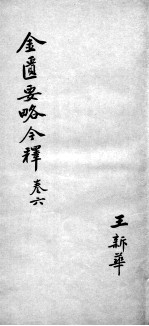 金匱要略今釋 卷六
王新華